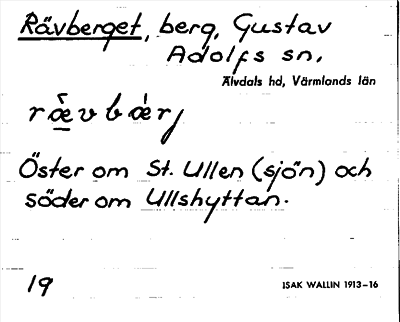 Rävberget, berg, Gustav
Adolfs sn,
Älvdals hd, Värmlands län
ræ̀vbær̀j
Öster om St. Ullen (sjön) och
söder om Ullshyttan.
19
ISAK WALLIN 1913–16